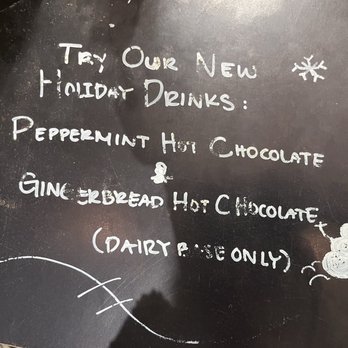 Try Our New
Holiday Drinks:
Peppermint Hot Chocolate
&
Gingerbread Hot Chocolate
(Dairy Base Only)